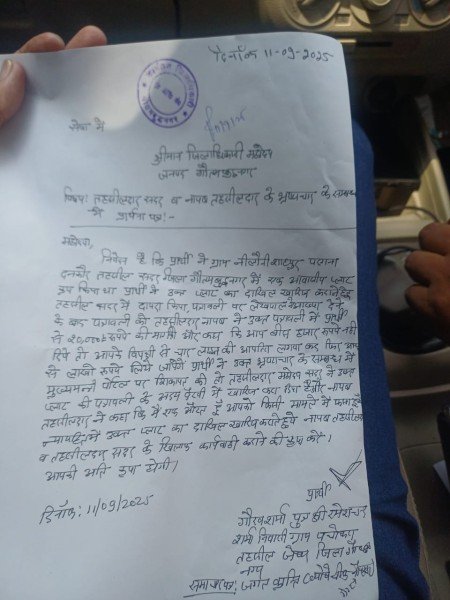 दिनाँक 11-09-2025
सेवा में
श्रीमान जिलाधिकारी महोदय
जनपद गौतमबुद्धनगर
विषय: तहसीलदार सदर व नायब तहसीलदार के भ्रष्टाचार के सम्बन्ध
में प्रार्थना पत्र:-
महोदय,
निवेदन है कि प्रार्थी ने ग्राम परगना
दनकौर तहसील सदर जिला गौतमबुद्धनगर में एक आवासीय प्लाट
क्रय किया था प्रार्थी ने उक्त प्लाट का दाखिल खारिज
तहसील सदर में दायरा किया, पत्रावली पर लेखपाल
के बाद पत्रावली को तहसीलदार नायब ने उक्त पत्रावली में प्रार्थी
से 20,000 रुपये की मांग की और कहा कि आप बीस हजार रुपये नही
दिये तो आपके विपक्षी से चार लाख की आपत्ति लगवा कर फिर आप
से लाखो रुपये लिये जायेंगे प्रार्थी ने उक्त भ्रष्टाचार के सम्बन्ध में
मुख्यमन्त्री पोर्टल पर शिकायत की तो तहसीलदार महोदय सदर ने उक्त
प्लाट की पत्रावली के अदम पैरवी में खारिज कर दिया है और नायब
तहसीलदार ने कहा कि में एक औरत हूँ आपको किसी मामले में फसा
न्यायहित में उक्त प्लाट का दाखिल खारिज कराते हुये नायब तहसीलदार
व तहसीलदार सदर के खिलाफ कार्यवाही कराने की कृपा करें।
आपकी अति कृपा होगी।
दिनाँक: 11/09/2025
प्रार्थी
गौरव शर्मा पुत्र श्री रमेशचन्द
शर्मा निवासी ग्राम पचोकरा
तहसील जेवर जिला गौतमबुद्ध
नगर
समाचार पत्र: जगत क्रान्ति